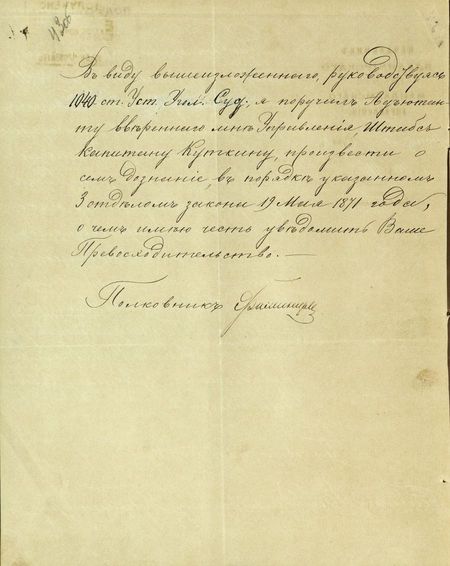 Въ виду вышеизложеннаго, руководствуясь
1040 ст. Уст. Угол. Суд. я поручилъ Адъютан-
ту ввѣреннаго мнѣ Управленія, Штабсъ-
Капитану Куткину, произвести о
семъ дознаніе, въ порядкѣ указанномъ
3 отдѣломъ закона 19 Мая 1871 года,
о чемъ имѣю честь увѣдомить Ваше
Превосходительство. —
Полковникъ